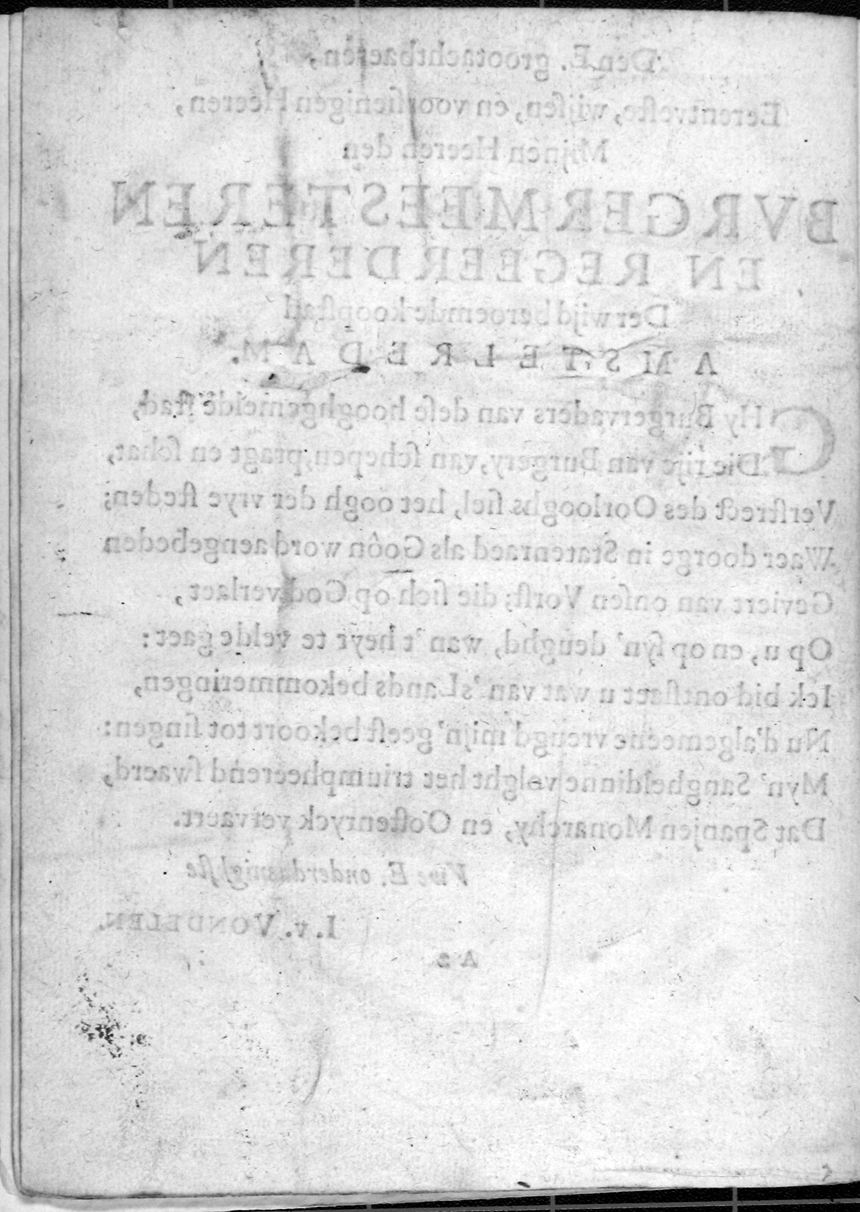 Den E. grootachtbaeren,
Eerentveste, wijsen, en voorsienigen Heeren,
Mijnen Heeren den
BVRGERMEESTEREN
EN REGEERDEREN
Der wijd beroemde koopstad
AMSTELREDAM.
GHy Burgervaders van dese hooghgemelde stad,
Die rijc van Burgery, van schepen, pragt en schat,
Verstrect des Oorlooghs siel, het oogh der vrye steden;
Waer doorge in Statenraed als Goôn word aengebeden
Geviert van onsen Vorst; die sich op God verlaet,
Op u, en op syn' deughd, wan 't heyr te velde gaet:
Ick bid ontslaet u wat van 's Lands bekommeringen,
Nu d'algemeene vreugd mijn' geest bekoort tot singen:
Myn' Sangheldinne volght het triumpheerend swaerd,
Dat Spanjen Monarchy, en Oostenryck vervaert.
Vwe E. onderdanighste
I. v. VONDELEN.
A 2